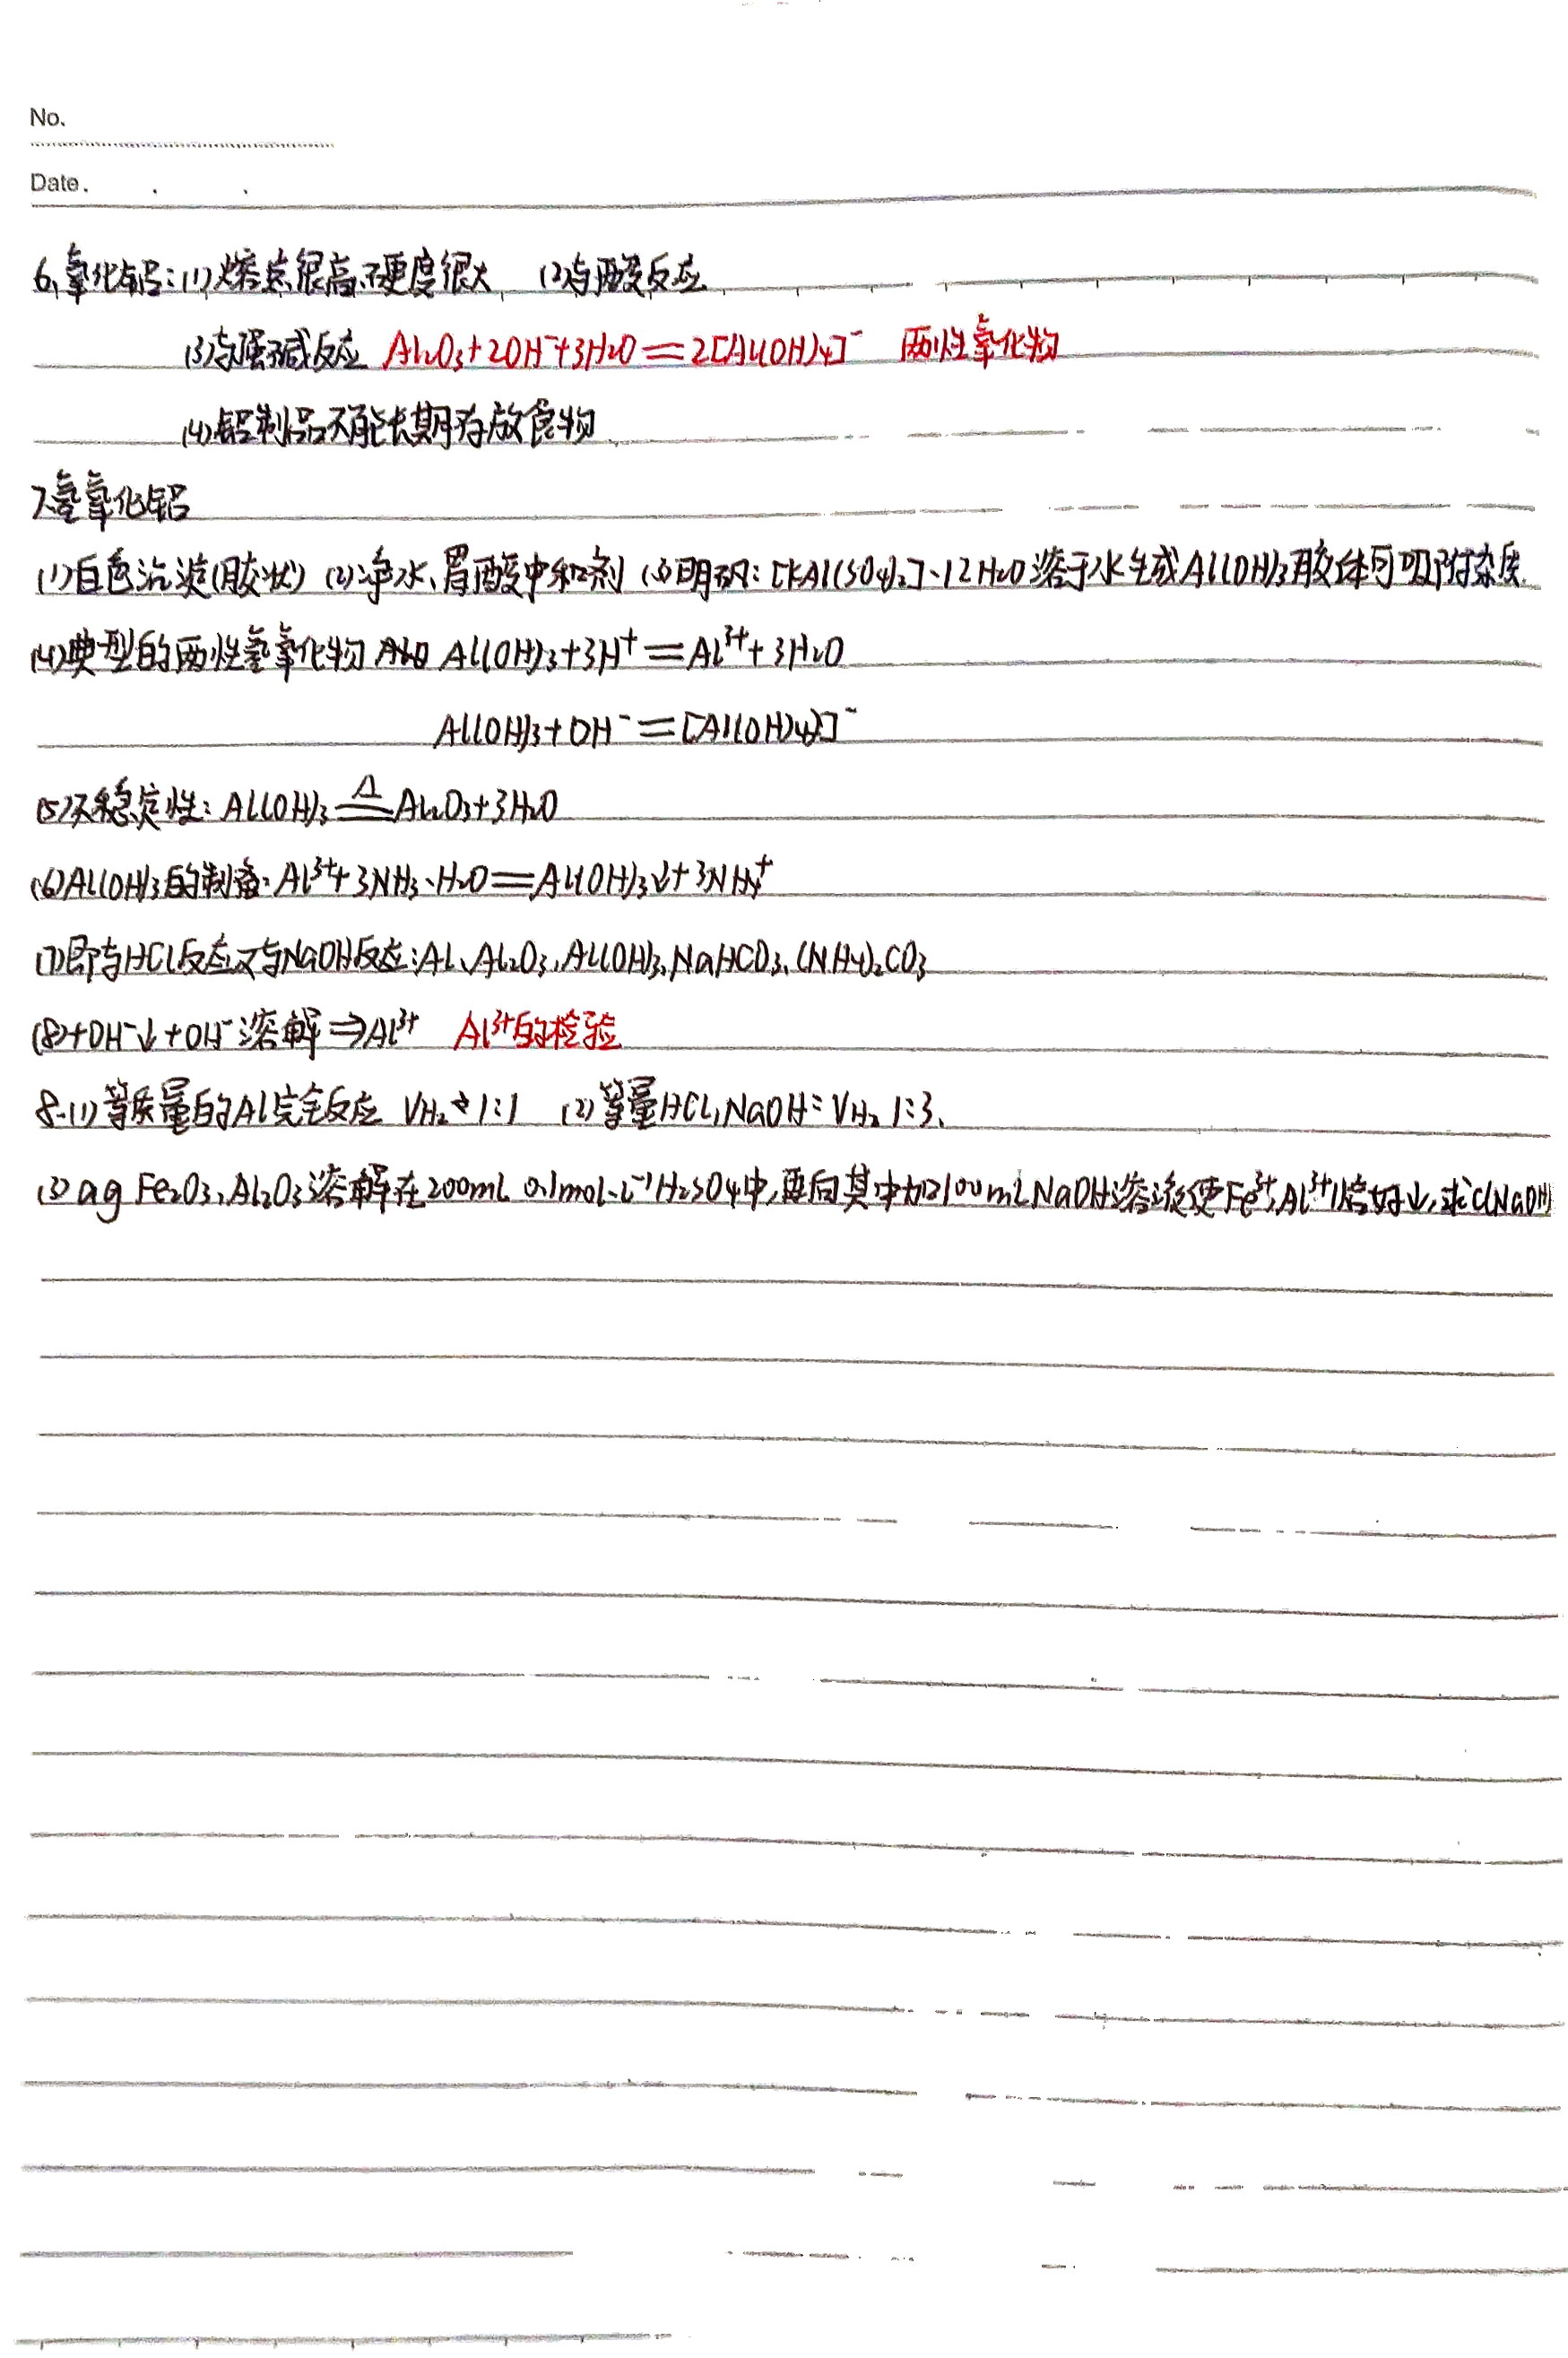 No.
Date.
6.氧化铝:(1)熔点很高、硬度很大 (2)与酸反应
(3)与强碱反应 Al₂O₃+2OH⁻+3H₂O=2[Al(OH)₄]⁻ 两性氧化物
(4)铝制品不能长期存放食物
7.氢氧化铝
(1)白色沉淀(胶状) (2)净水、胃酸中和剂 (3)明矾:[KAl(SO₄)₂]·12H₂O溶于水生成Al(OH)₃胶体可吸附杂质
(4)典型的两性氢氧化物 Al(OH)₃+3H⁺=Al³⁺+3H₂O
Al(OH)₃+OH⁻=[Al(OH)₄]⁻
(5)不稳定性:Al(OH)₃≜Al₂O₃+3H₂O
(6)Al(OH)₃的制备:Al³⁺+3NH₃·H₂O=Al(OH)₃↓+3NH₄⁺
(7)即与HCl反应又与NaOH反应:Al、Al₂O₃,Al(OH)₃,NaHCO₃,(NH₄)₂CO₃
(8)+OH⁻↓+OH⁻溶解⇒Al³⁺ Al³⁺的检验
8.(1)等质量的Al完全反应 VH₂ 1:1 (2)等量HCl,NaOH:VH₂ 1:3.
(3)ag Fe₂O₃,Al₂O₃溶解在200mL 0.1mol·L⁻¹H₂SO₄中,再向其中加100mLNaOH溶液使Fe³⁺,Al³⁺恰好↓,求c(NaOH)